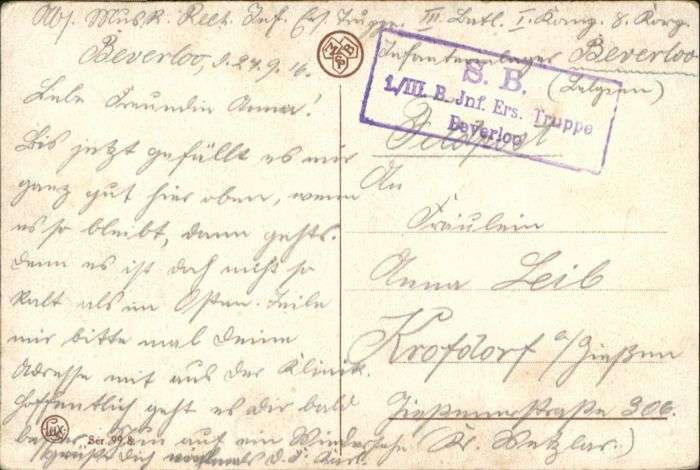 Abs. Musk. Rekt. Inf. Ers. Trupp. III. Batl. I. Komp. 8. Korp.
Infanterielager Beverloo
(Belgien)
Beverloo, d. 27.9.16.
Liebe Freundin Anna!
Bis jetzt gefällt es mir
ganz gut hier oben, wenn
es so bleibt, dann gehts.
Denn es ist doch nicht so
kalt als im Osten. Teile
mir bitte mal Deine
Adresse mit aus der Klinik.
Hoffentlich geht es dir bald
besser. Nun auf ein Wiedersehn
grüßt Dich nochmals d. F.
MSBP
S. B.
1./III. B. Jnf. Ers. Truppe
Beverloo
Feldpost
An
Fräulein
Anna Leib
Krofdorf a/Gießen
Gießenerstraße 306.
(Kr. Wetzlar)
Lux
Ser. 99.8.